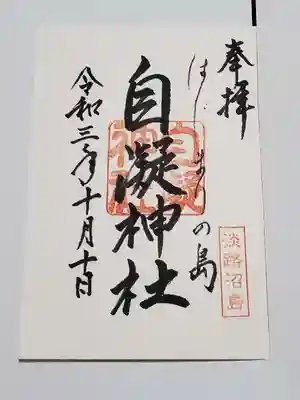 奉拝
はじまりの島
淡路沼島
自凝神社
自凝神社
令和三年十月十日